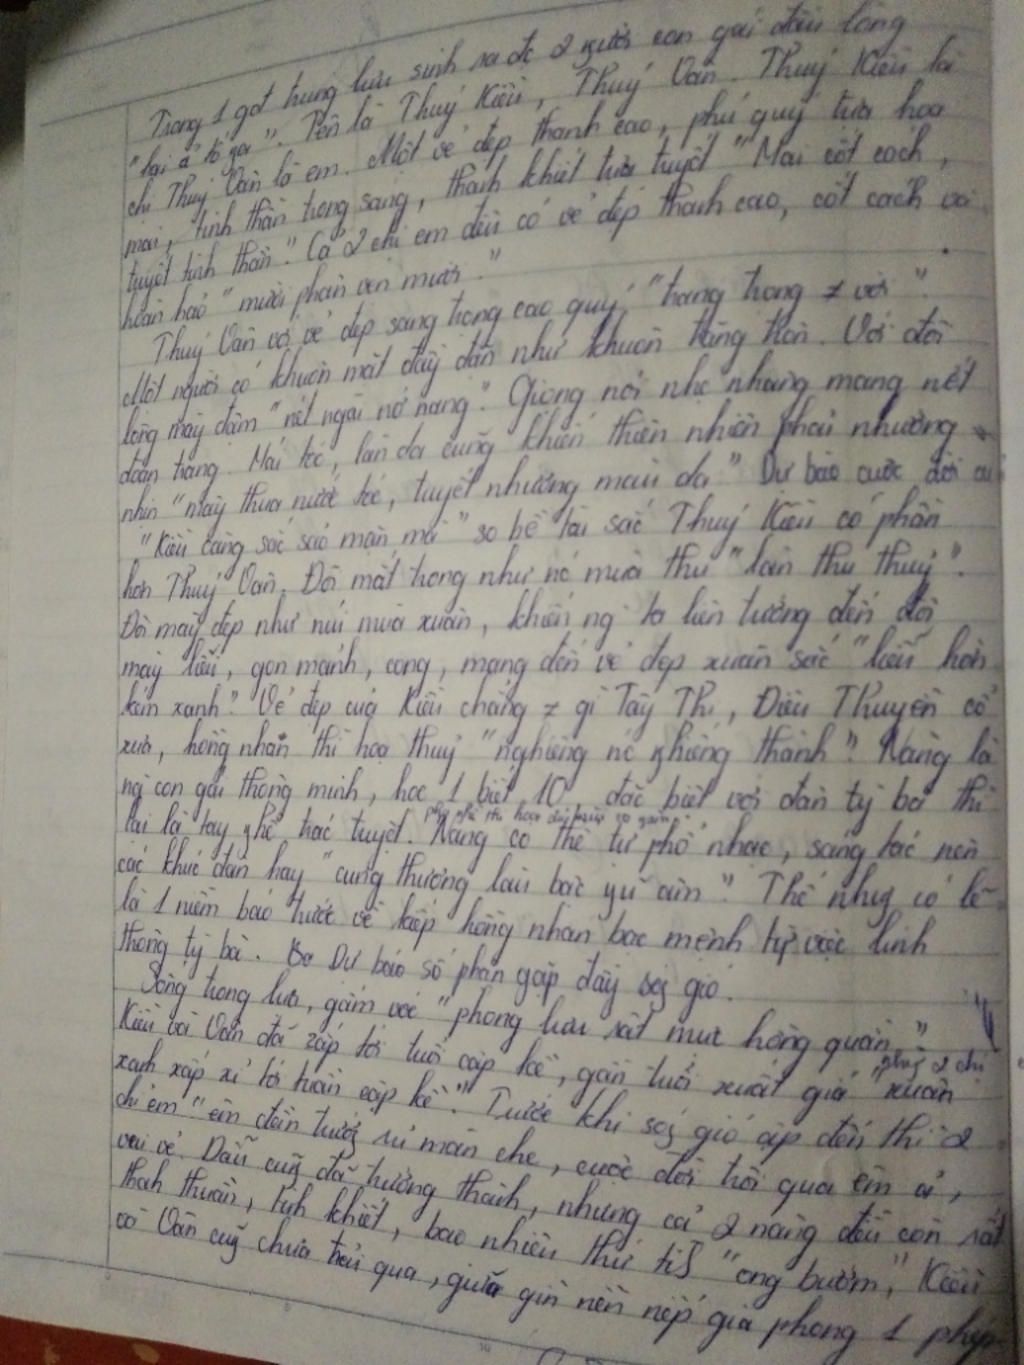 Trong 1 gđ trung lưu sinh ra đc 2 người con gái đầu lòng
"hai ả tố nga". Tên là Thuý Kiều, Thuý Vân. Thuý Kiều là
chị Thuý Vân là em. Một vẻ đẹp thanh cao, phú quý tựa hoa
mai, tinh thần trong sáng, thanh khiết tựa tuyết "Mai cốt cách,
tuyết tinh thần". Cả 2 chị em đều có vẻ đẹp thanh cao, cốt cách và
hoàn hảo "mười phân vẹn mười."
Thuý Vân với vẻ đẹp sang trọng cao quý, "trang trọng ≠ vời".
Một người có khuôn mặt đầy đặn như khuôn trăng tròn. Với đôi
lông mày đậm "nét ngài nở nang". Giọng nói nhẹ nhàng mang nét
đoan trang. Mái tóc, làn da cũng khiến thiên nhiên phải nhường
nhịn "mây thua nước tóc, tuyết nhường màu da" Dự báo cuộc đời
"Kiều càng sắc sảo mặn mà" so bề tài sắc Thuý Kiều có phần
hơn Thuý Vân. Đôi mắt trong như nc mùa thu "làn thu thuỷ".
Đôi mày đẹp như núi mùa xuân, khiến ng ta liên tưởng đến đôi
mày liễu, gọn mảnh, cong, mang đến vẻ đẹp xuân sắc "liễu hờn
kém xanh". Vẻ đẹp của Kiều chẳng ≠ gì Tây Thi, Điêu Thuyền cổ
xưa, hồng nhan thì hoạ thuỷ "nghiêng nc nghiêng thành". Nàng là
ng con gái thông minh, học 1 biết 10, đặc biệt với đàn tỳ bà thì
lại là tay nghề trác tuyệt. Nàng có thể tự phổ nhạc, sáng tác nên
các khúc đàn hay "cung thương lầu bậc ngũ âm". Thế nhưg có lẽ
là 1 niềm báo trước về kiếp hồng nhan bạc mệnh từ việc tinh
thông tỳ bà. Dự báo số phận gặp đầy sóg gió.
Sống trong lụa, gấm vóc "phong lưu rất mực hồng quần."
Kiều và Vân đã sắp tới tuổi cập kê, gần tuổi xuất giá "xuân
xanh xấp xỉ tới tuần cập kê". Trước khi sóg gió ập đến thì 2
chị em "êm đềm trướg rủ màn che, cuộc đời trôi qua êm ả,
vui vẻ. Dẫu cũg đã trưởng thành, nhưng cả 2 nàng đều còn rất
thah thuần, tih khiết, bao nhiêu thứ "ong bướm", Kiều
và Vân cũg chưa trải qua, giữ gìn nền nếp gia phong 1 phép